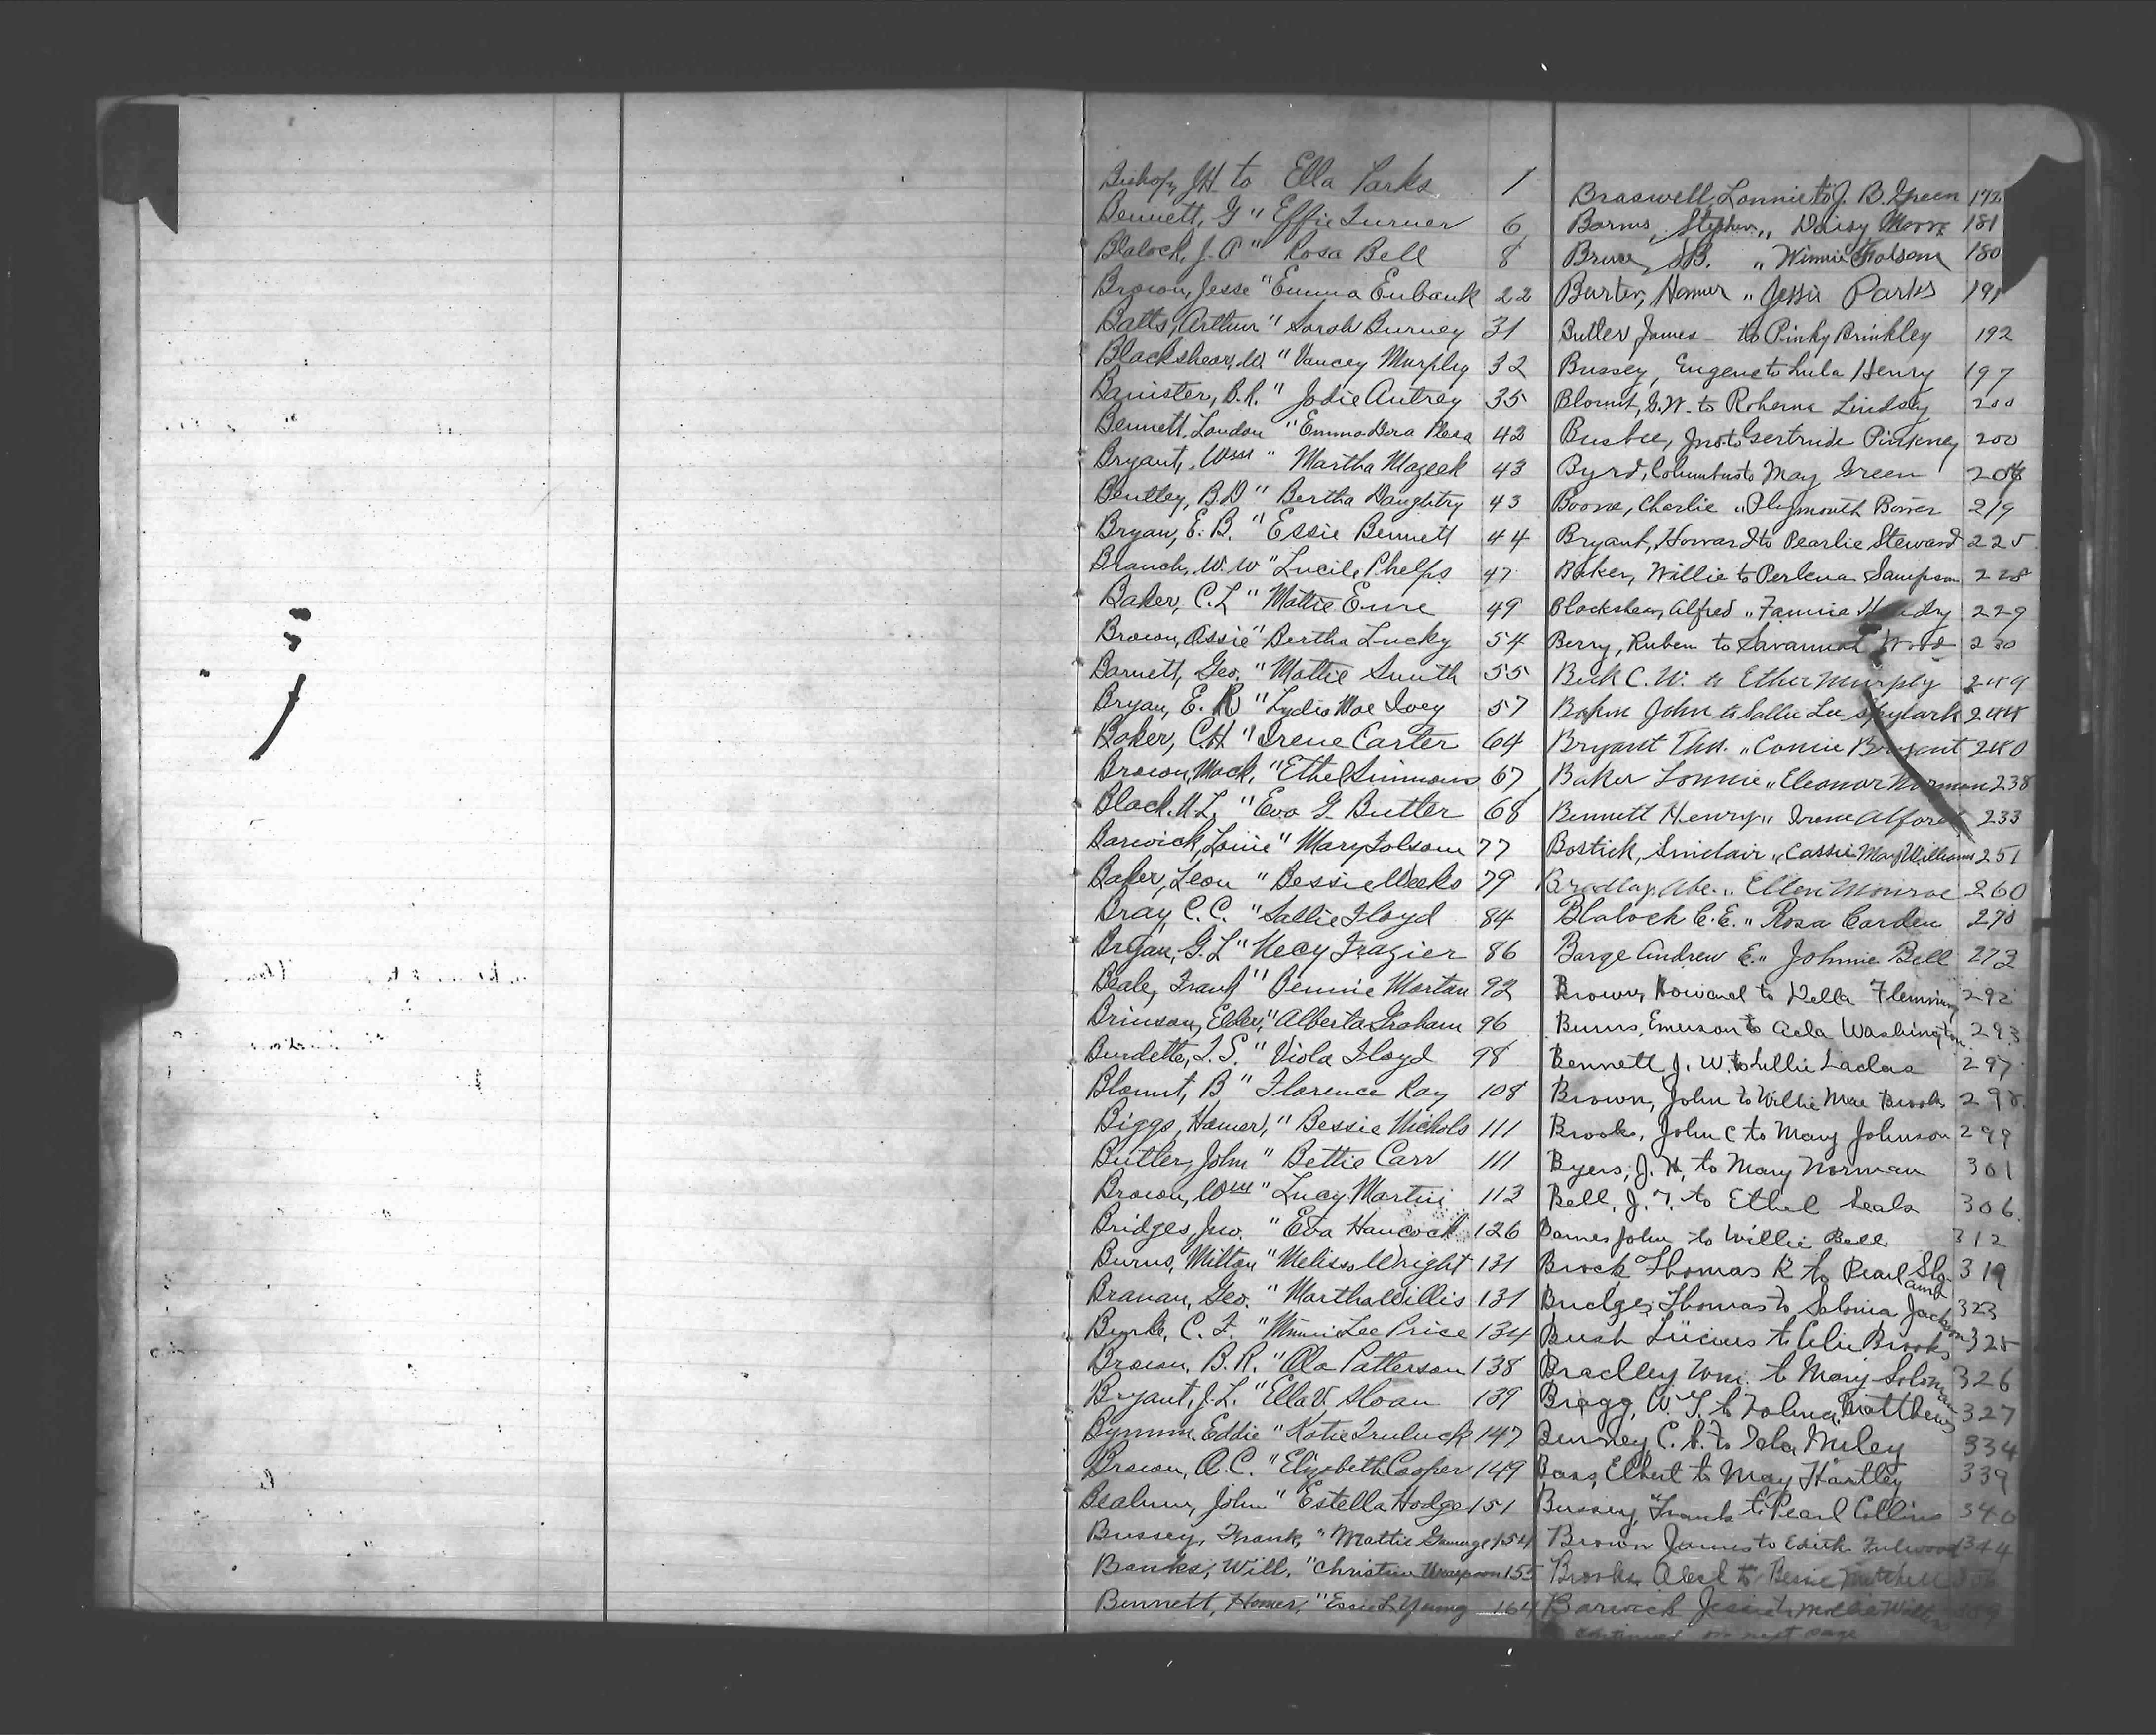 Bishop, JH to Ella Parks 1
Bennett, G " Effie Turner 6
Blalock, J. P " Rosa Bell 8
Brown, Jesse " Emma Eubank 22
Batts, Arthur " Sarah Burney 31
Blackshear, W. " Vancey Murphy 32
Banister, B.R. " Jodie Autrey 35
Bennett, London " Emma Dora 42
Bryant, Wm " Martha Mazeek 43
Bentley, B.D " Bertha Daughtry 43
Bryan, E. B. " Essie Bennett 44
Branch, W. W " Lucile Phelps 47
Baker, C. L " Mattie 49
Brown, Ossie " Bertha Lucky 54
Barnett, Geo. " Mattie Smith 55
Bryan, E. R " Lydia Mae Ivey 57
Baker, C.H " Irene Carter 64
Brown, Mack, " Ethel Simmons 67
Black. L. " Eva G Butler 68
Barwick, Louie " Mary Folsom 77
Baker, Leon " Bessie Weeks 79
Bray, C. C. " Sallie Floyd 84
Bryan, G. L " Necy Frazier 86
Beale, Frank " Pennie Mortan 92
Brinson, Elder, " Alberta Graham 96
Burdette, T. S. " Viola Floyd 98
Blount, B " Florence Ray 108
Biggs, Homer, " Bessie Nichols 111
Butler, John " Bettie Carr 111
Brown, Wm " Lucy Martin 113
Bridges, Jno. " Eva Hancock 126
Burns, Milton " Melissa Wright 131
Branan, Geo. " Martha Willis 131
Burke, C. F. " Minnie Lee Price 134
Brown, B. R. " Ola Patterson 138
Bryant, J. L. " Ella V. Sloan 139
Bynum, Eddie " Katie Truluck 147
Brown, A. C. " Elizabeth Cooper 149
John " Estella Hodge 151
Bussey, Frank, " Mattie 154
Banks, Will, " Christine 155
Bennett, Homer, " Essie L Young 164
Braswell, Lonnie to J. B. Green 172
Barns, Stephen " Daisy Moore 181
Bruce, B. " Winnie Folsom 180
Burton, Homer " Jessie Parks 191
Butler James to Pinky Brinkley 192
Bussey, Eugene to Lula Henry 197
Blount, G. W. to Rohema Lindsey 200
Busbee, Jno to Gertrude Pinkney 200
Byrd, Columbus to May Green 208
Boone, Charlie " Plymouth 219
Bryant, Howard to Pearlie Steward 225
Baker, Willie to Perlena Sampson 228
Blackshear, Alfred " Fannie 229
Berry, Ruben to Savannah 230
Beck C. W. to Ether Murphy 249
John to Sallie Lee 244
Bryant Thos. " Connie Bryant 240
Baker Lonnie " Eleanor Norman 238
Bennett Henry " Irene Alford 233
Bostick, Sinclair " Cassie May Williams 251
Bradley, Abe. " Ellen Monroe 260
Blalock C. E. " Rosa Carden 270
Barge Andrew E. " Johnnie Bell 273
Brown, Howard to Della Fleming 292
Burns, Emerson to Ada Washington 293
Bennett J. W. to Lillie 297
Brown, John to Willie Mae Brooks 298
Brooks, John C to Mary Johnson 299
Byers, J. H. to Mary Norman 301
Bell, J. T. to Ethel Seals 306
Barnes John to Willie Bell 312
Brock Thomas R to Pearl 319
Bridges Thomas to Salonia Jackson 323
Bush Lucious to Brooks 325
Bradley Wm. to Mary Soloman 326
Bragg, W. T. to Matthews 327
Burney, C. to Miley 334
Bass, Elbert to May Hartley 339
Bussey, Frank to Pearl Collins 340
Brown James to Edith Fulwood 344
Brooks to Bessie Mitchell
Barwick Jessie to Mollie
continued on next page